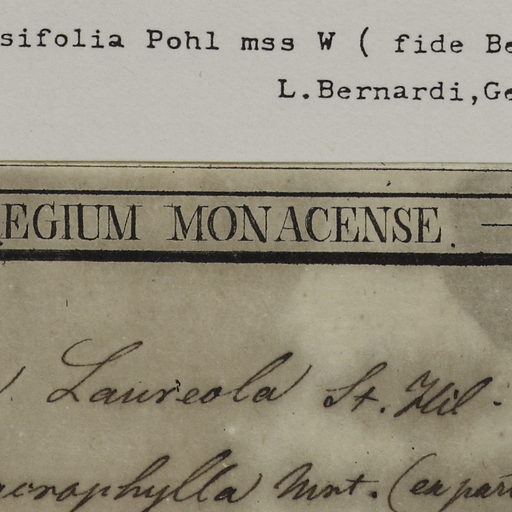 sifolia Pohl mss W ( fide Be
L.Bernardi,Ge
EGIUM MONACENSE.
Laureola St. Hil.
acrophylla Mnt. (ex part